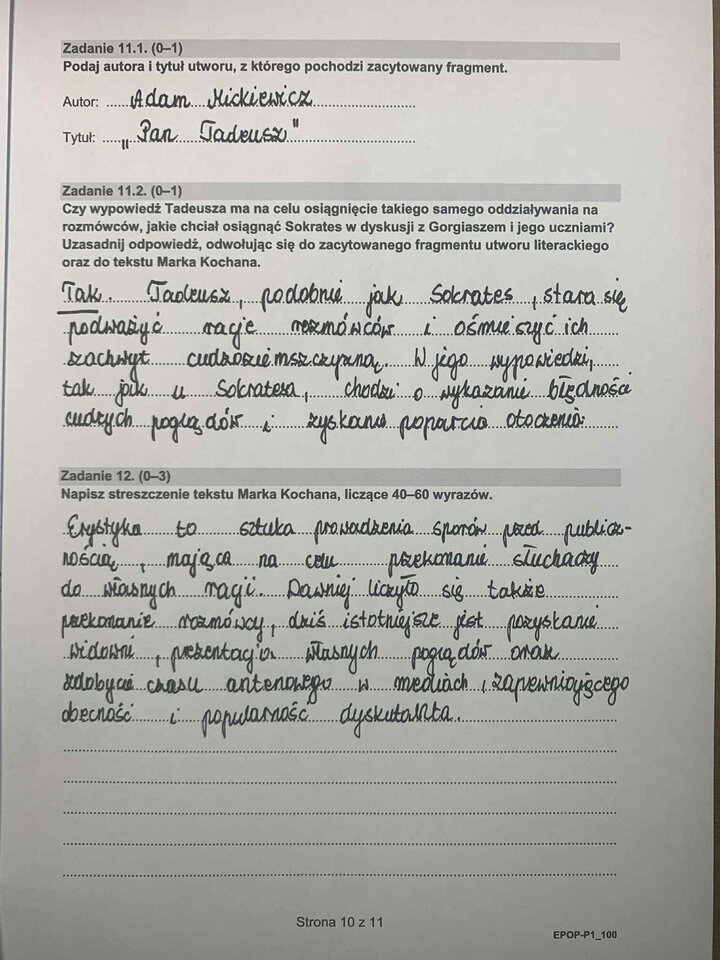 Zadanie 11.1. (0–1)
Podaj autora i tytuł utworu, z którego pochodzi zacytowany fragment.
Autor: Adam Mickiewicz
Tytuł: „Pan Tadeusz"
Zadanie 11.2. (0–1)
Czy wypowiedź Tadeusza ma na celu osiągnięcie takiego samego oddziaływania na
rozmówców, jakie chciał osiągnąć Sokrates w dyskusji z Gorgiaszem i jego uczniami?
Uzasadnij odpowiedź, odwołując się do zacytowanego fragmentu utworu literackiego
oraz do tekstu Marka Kochana.
Tak. Tadeusz, podobnie jak Sokrates, stara się
podważyć racje rozmówców i ośmieszyć ich
zachwyt cudzoziemszczyzną. W jego wypowiedzi,
tak jak u Sokratesa, chodzi o wykazanie błędności
cudzych poglądów i zyskanie poparcia otoczenia.
Zadanie 12. (0–3)
Napisz streszczenie tekstu Marka Kochana, liczące 40–60 wyrazów.
Erystyka to sztuka prowadzenia sporów przed publicz-
nością, mająca na celu przekonanie słuchaczy
do własnych racji. Dawniej liczyło się także
przekonanie rozmówcy, dziś istotniejsze jest pozyskanie
widowni, prezentacja własnych poglądów oraz
zdobycie czasu antenowego w mediach, zapewniającego
obecność i popularność dyskutanta.
Strona 10 z 11
EPOP-P1_100